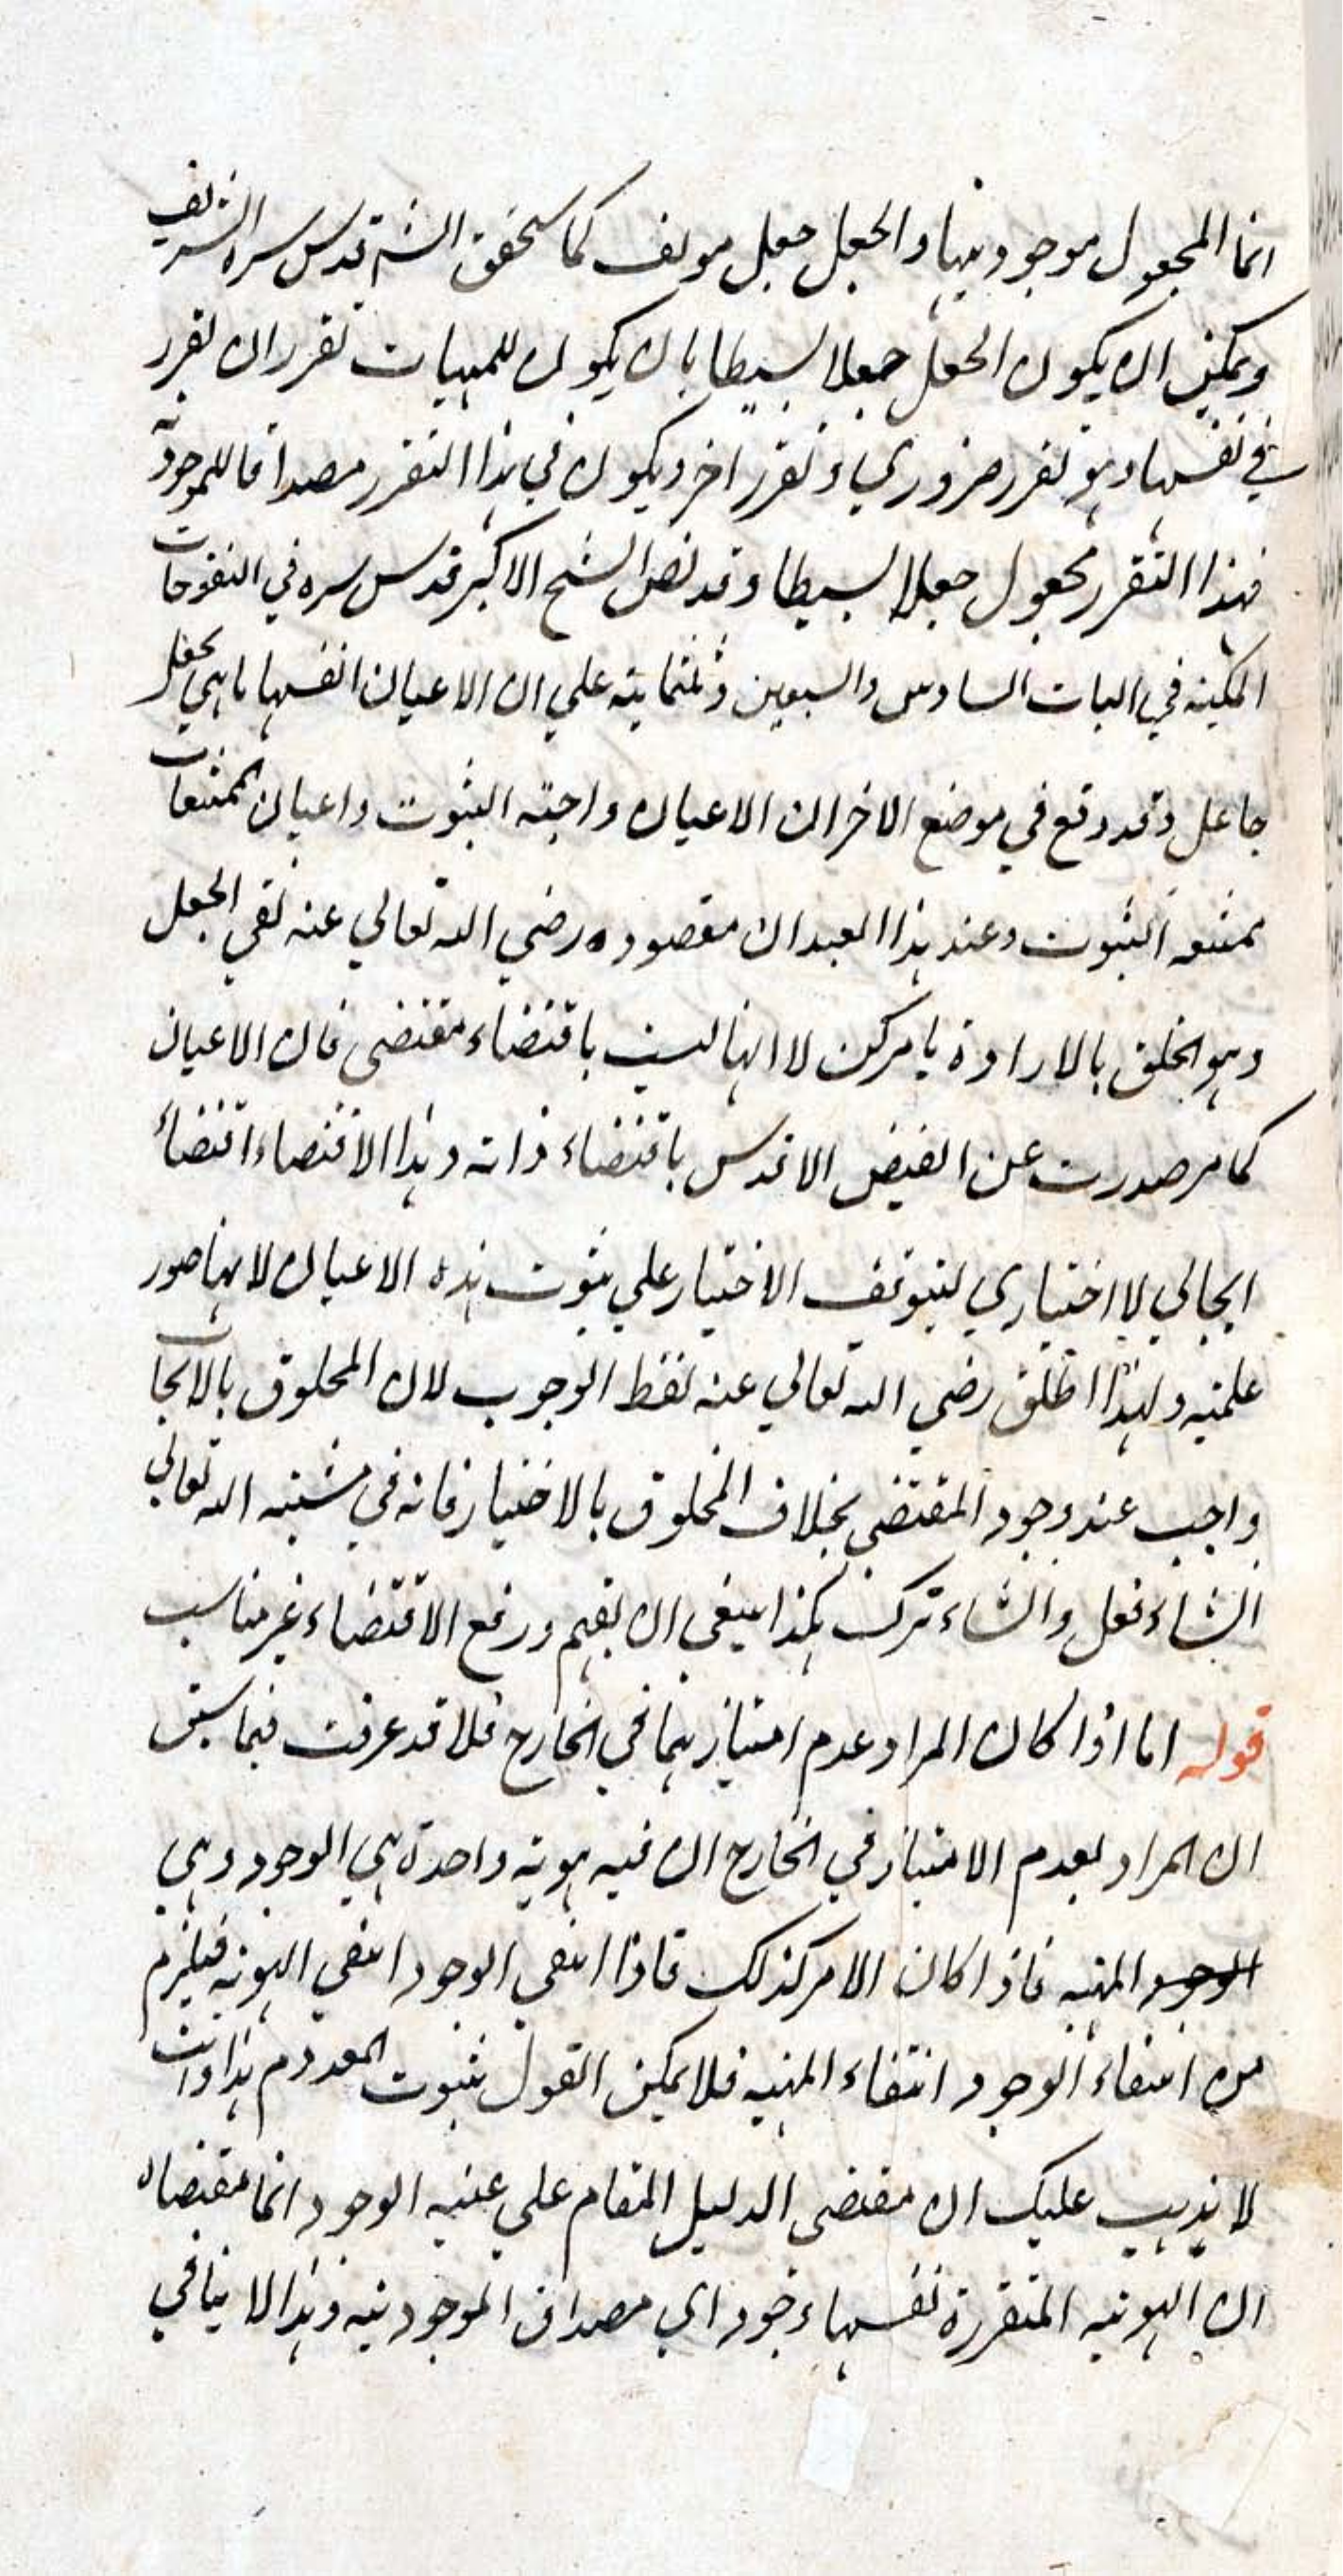 انما المجعول موجوديتها والجعل جعل مولف كما سيحقق الش قدس سره الشريف
ويمكن ان يكون الجعل جعلا بسيطا بان يكون للمهيات تقرر ان تقرر
في نفسها وهو تقرر ضروري وتقرر اخر ويكون في هذا التقرر مصداقا للموجودية
فهذا التقرر مجعول جعلا بسيطا وقد نص الشيخ الاكبر قدس سره في الفتوحات
المكية في الباب السادس والسبعين وثلثماية على ان الاعيان انفسها ما هي بجعل
جاعل وقد وقع في موضع الاخر ان الاعيان واجبة الثبوت واعيان الممتنعات
ممتنعة الثبوت وعند هذا العبد ان مقصوده رضي الله تعالي عنه نفي الجعل
وهو الخلق بالارادة بامر كن لا انها ليست باقتضاء مقتضى فان الاعيان
كما مر صدرت عن الفيض الاقدس باقتضاء ذاته وهذا الاقتضاء اقتضاء
ايجابي لا اختياري لتوقف الاختيار علي ثبوت هذه الاعيان لانها صور
علمية ولهذا اطلق رضي الله تعالي عنه لفظ الوجوب لان المخلوق بالايجاب
واجب عند وجود المقتضي بخلاف المخلوق بالاختيار فانه في مشية الله تعالي
ان شاء فعل وان شاء ترك هكذا ينبغي ان يفهم ورفع الاقتضاء غير مناسب
قوله اما اذا كان المراد عدم امتيازهما في الخارج فلا قد عرفت فيما سبق
ان المراد بعدم الامتياز في الخارج ان فيه هوية واحدة هي الوجود وهي
الوجود المهية فاذا كان الامر كذلك فاذا انتفي الوجود انتفي الهوية فيلزم
من انتفاء الوجود انتفاء المهية فلا يمكن القول بثبوت المعدوم هذا وانت
لا يذهب عليك ان مقتضى الدليل المقام علي عينية الوجود انما مقتضاه
ان الهوية المتقررة نفسها وجود اي مصداق الموجودية وهذا لا ينافي